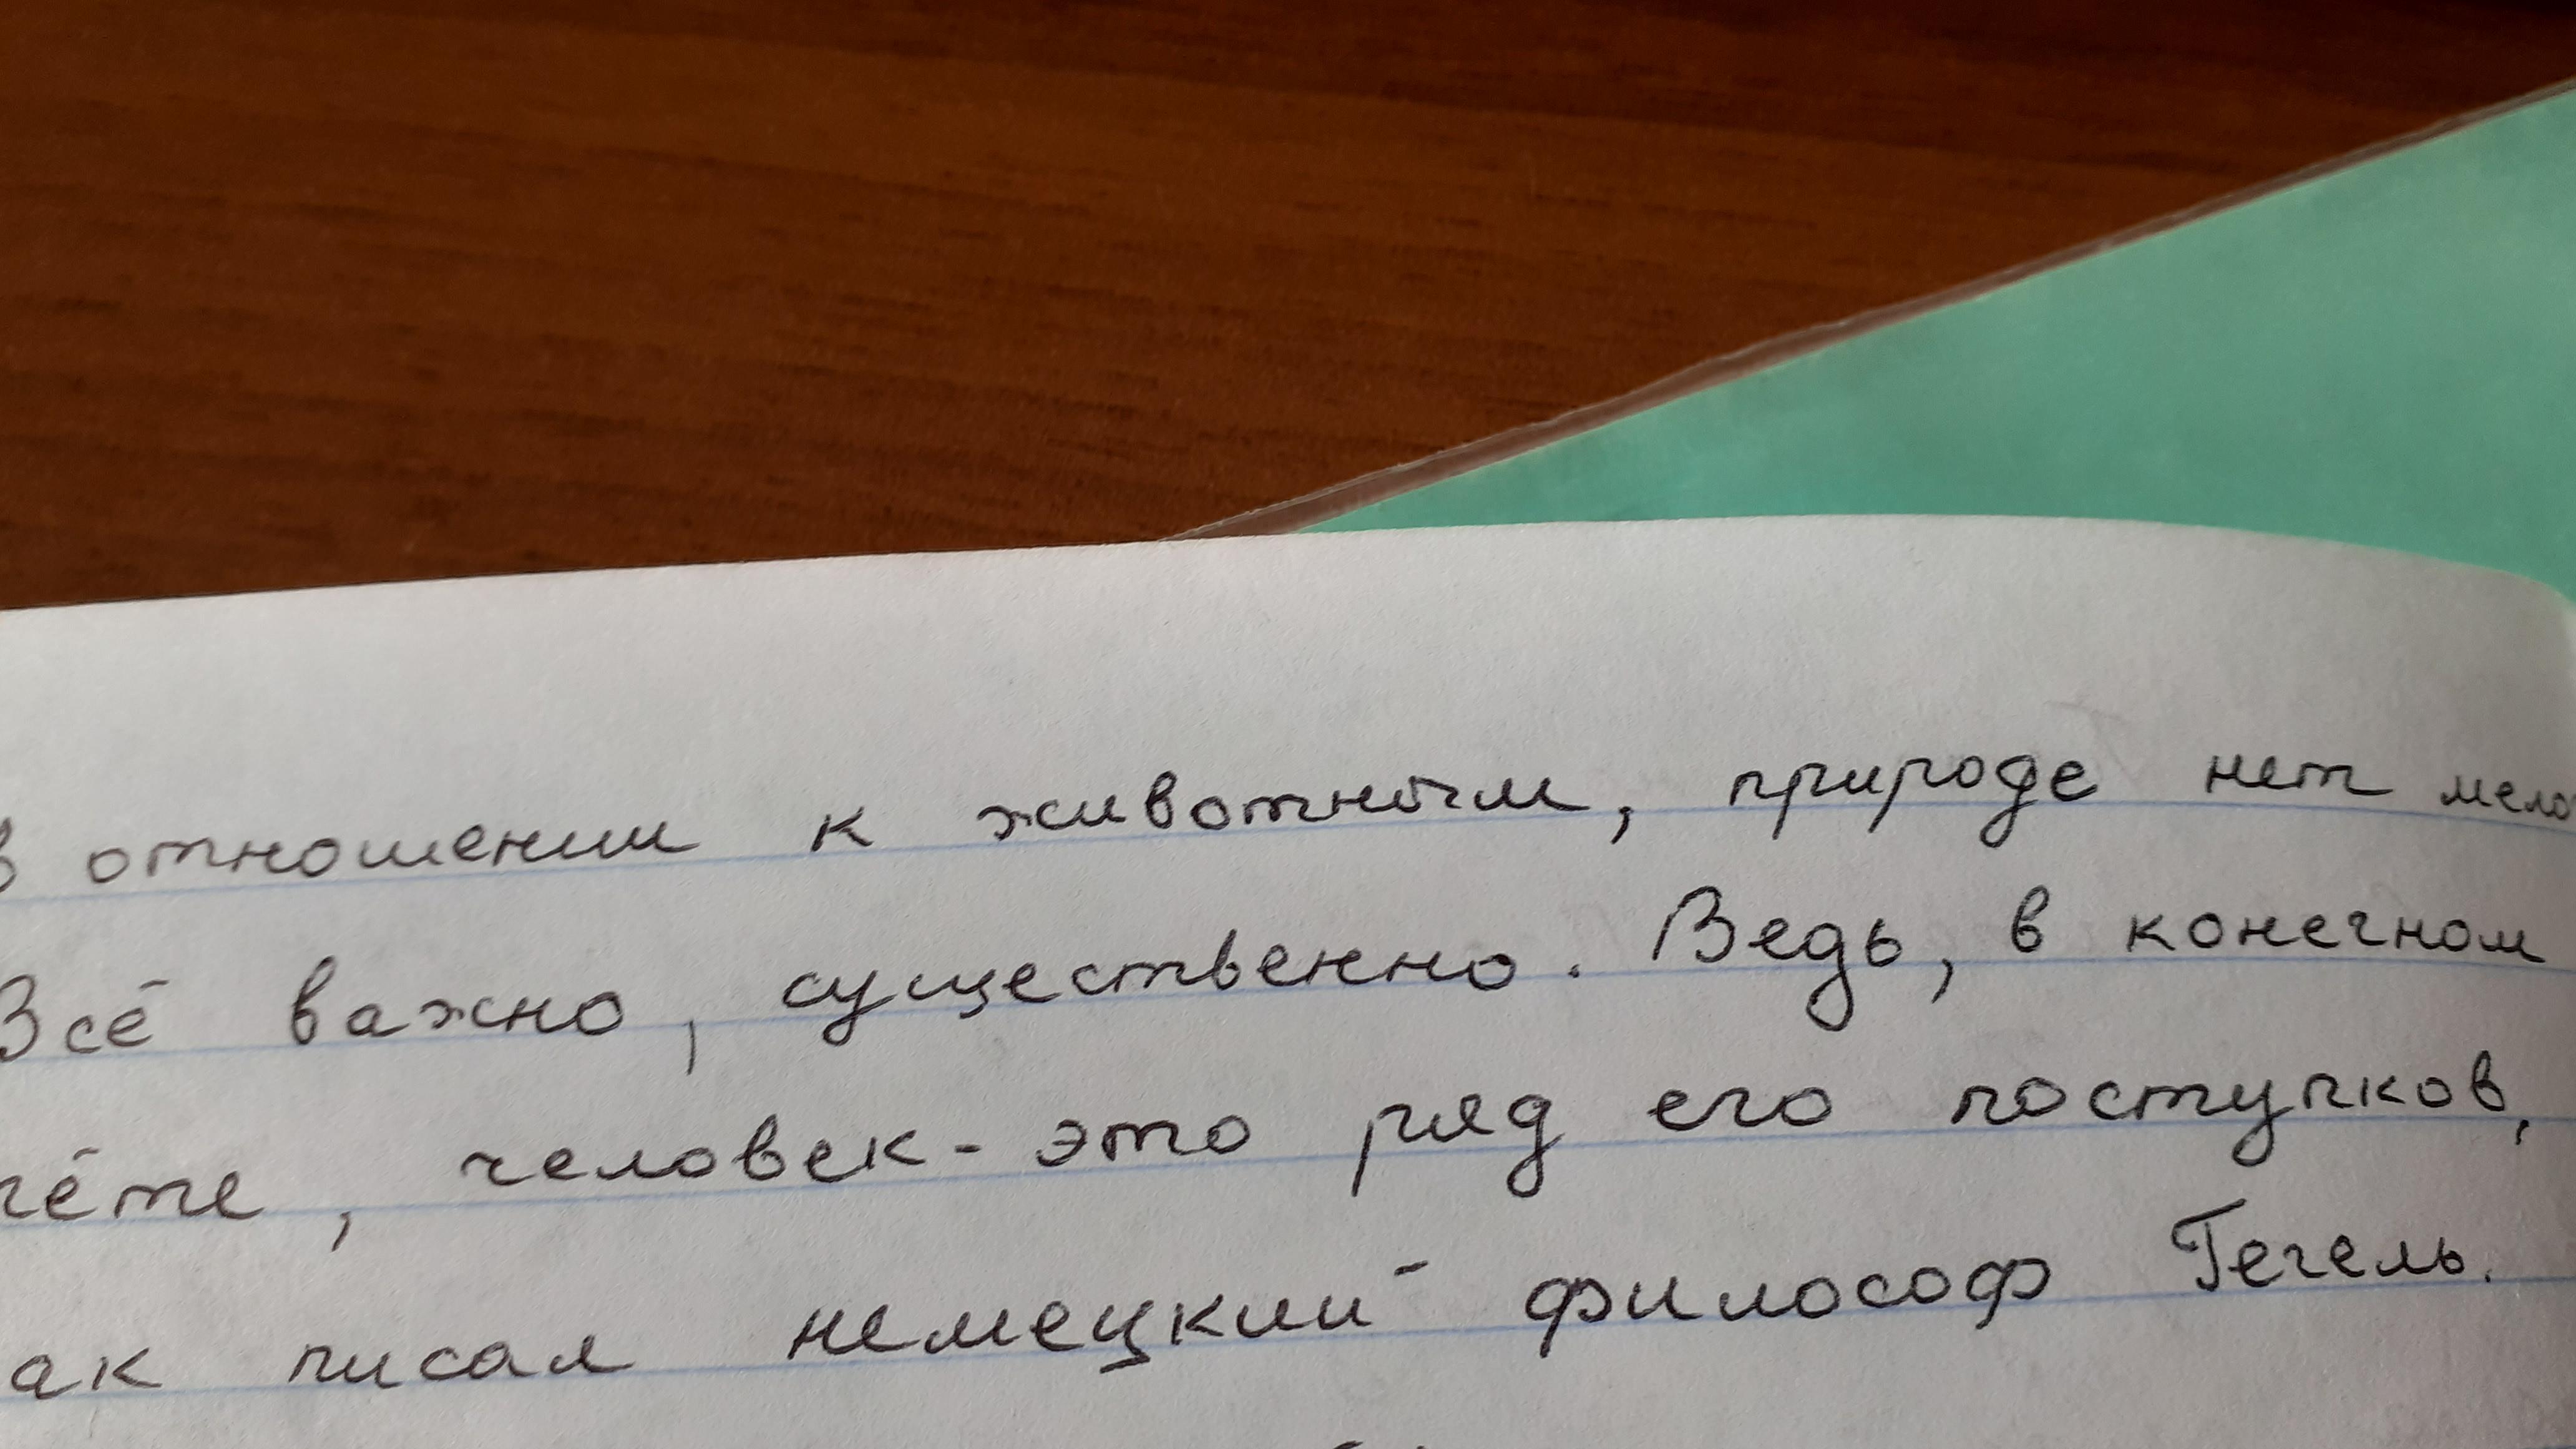 в отношении к животным, природе нет мело
Всё важно, существенно. Ведь, в конечном
чёте, человек - это ряд его поступков,
ак писал немецкий философ Гегель.